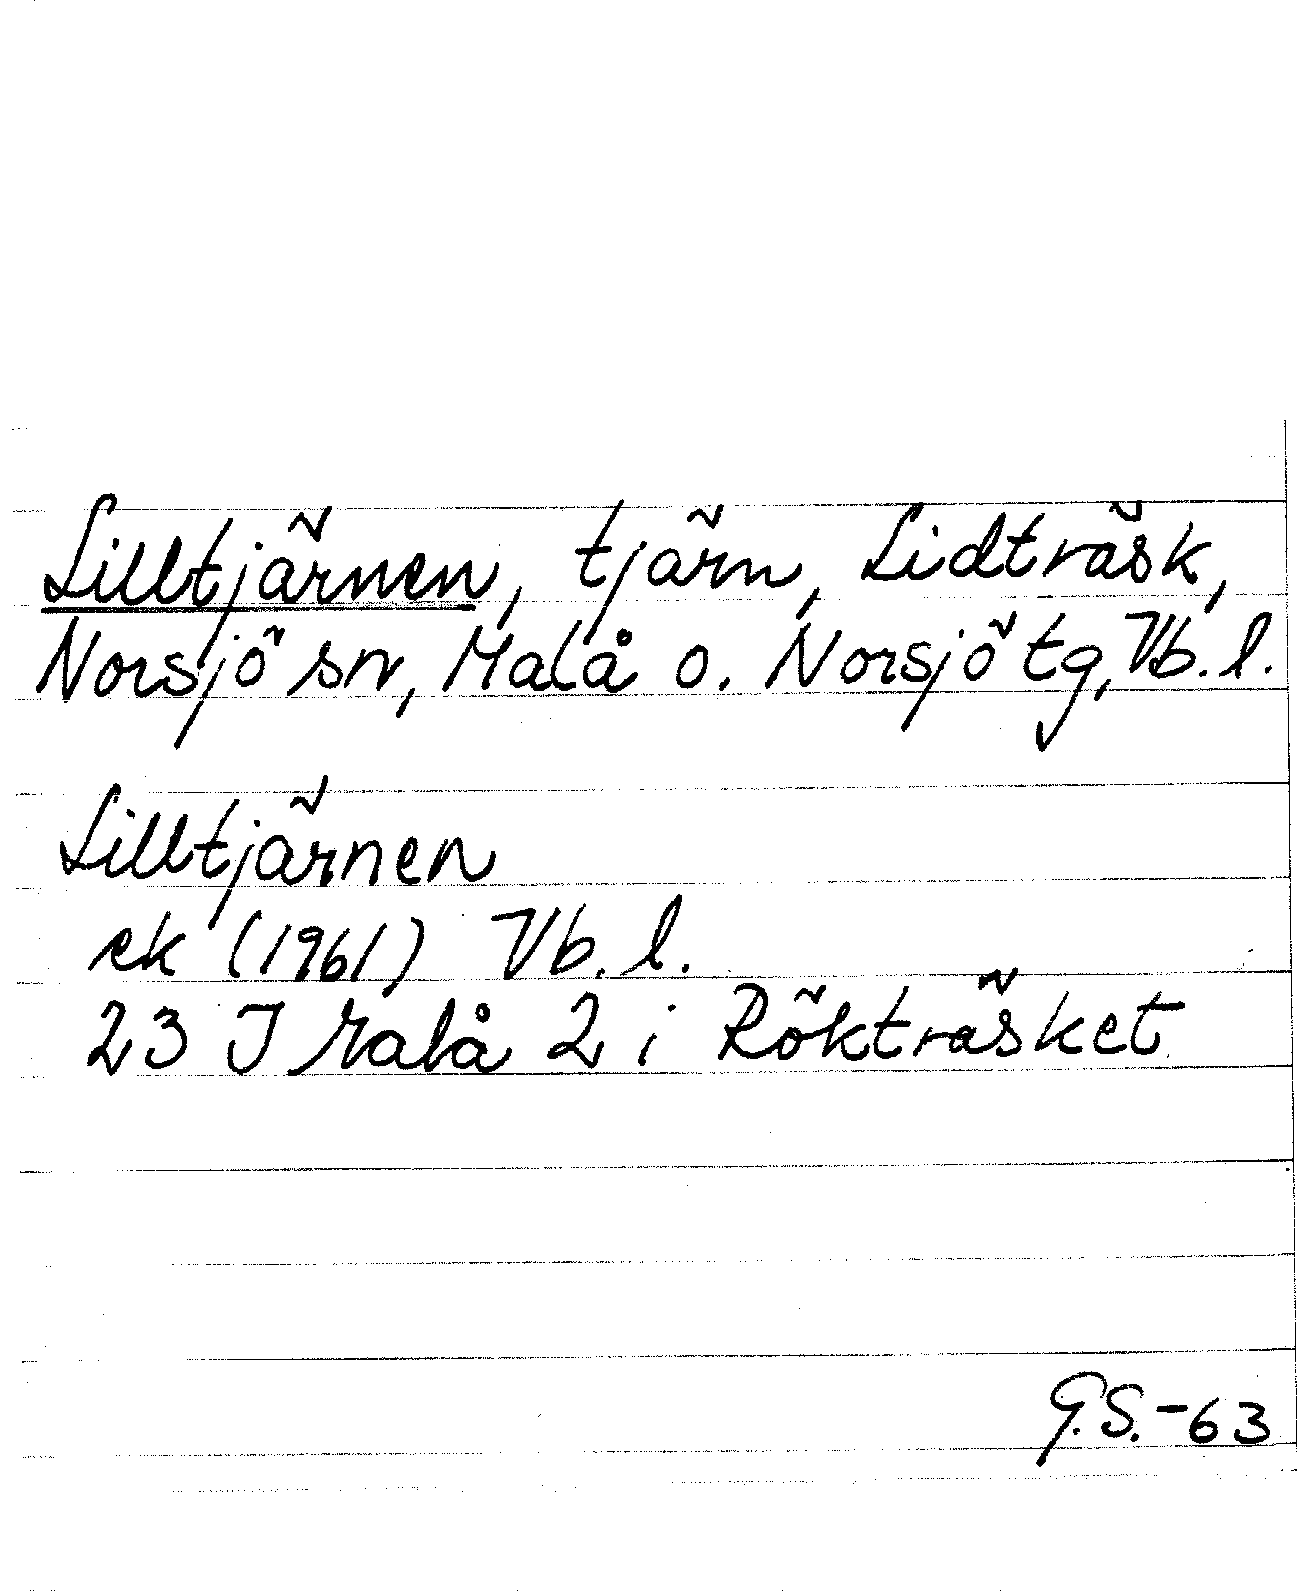 Lilltjärnen, tjärn, Lidträsk,
Norsjö sn, Malå o. Norsjö tg, Vb. l.
Lilltjärnen
ek (1961) Vb. l.
23 J Malå 2 i Rökträsket
G.S.-63